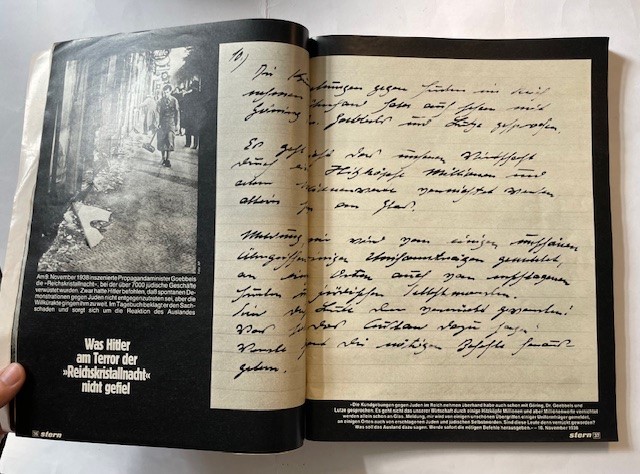 Am 9. November 1938 inszenierte Propagandaminister Goebbels
die »Reichskristallnacht«, bei der über 7000 jüdische Geschäfte
verwüstet wurden. Zwar hatte Hitler befohlen, daß spontanen De-
monstrationen gegen Juden nicht entgegenzutreten sei, aber die
Willkürakte gingen ihm zu weit. Im Tagebuch beklagt er den Sach-
schaden und sorgt sich um die Reaktion des Auslandes
Was Hitler
am Terror der
»Reichskristallnacht«
nicht gefiel
stern
10)
Die gegen Juden im Reich
nehmen überhand habe auch schon mit
Göring Goebbels und Lutze gesprochen.
Es geht das unserer Wirtschaft
durch Hitzköpfe Millionen und
aber vernichtet werden
allein an Glas.
Meldung, mir wird von einigen unschönen
Übergriffen einiger Uniformträger gemeldet,
an Orten auch von erschlagenen
Juden u. jüdischen Selbstmorden.
Sind die Leute denn verrückt geworden?
Was soll das Ausland dazu sagen?
Werde sofort die nötigen Befehle heraus-
geben.
»Die Kundgebungen gegen Juden im Reich nehmen überhand habe auch schon mit Göring, Dr. Goebbels und
Lutze gesprochen. Es geht nicht das unserer Wirtschaft durch einige Hitzköpfe Millionen und aber Millionenwerte vernichtet
werden allein schon an Glas. Meldung, mir wird von einigen unschönen Übergriffen einiger Uniformträger gemeldet,
an einigen Orten auch von erschlagenen Juden und jüdischen Selbstmorden. Sind diese Leute denn verrückt geworden?
Was soll das Ausland dazu sagen. Werde sofort die nötigen Befehle herausgeben.« – 10. November 1938
stern